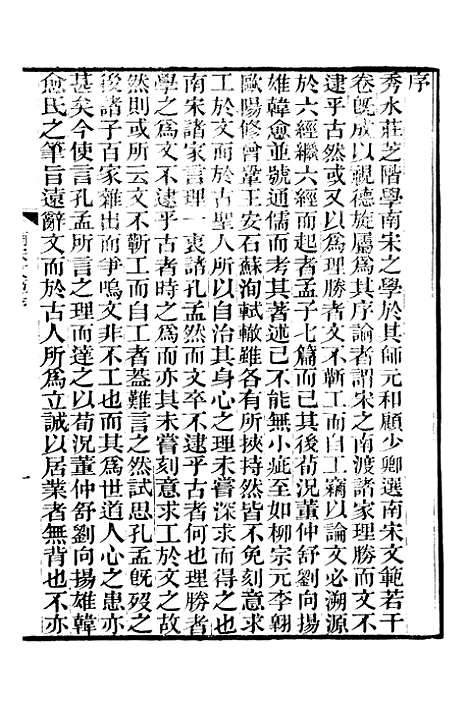 序
秀水莊芝階學南宋之學於其師元和顧少卿選南宋文範若干
卷旣成以視德旋屬爲其序論者謂宋之南渡諸家理勝而文不
逮乎古然或又以爲理勝者文不蘄工而自工竊以論文必溯源
於六經繼六經而起者孟子七篇而已其後荀況董仲舒劉向揚
雄韓愈並號通儒而考其著述已不能無小疵至如柳宗元李翱
歐陽修曾鞏王安石蘇洵軾轍雖各有所挾持然皆不免刻意求
工於文而於古聖人所以自治其身心之理未嘗深求而得之也
南宋諸家言理一衷諸孔孟然而文卒不逮乎古者何也理勝者
學之爲文不逮乎古者時之爲而亦其未嘗刻意求工於文之故
然則或所云文不蘄工而自工者蓋難言之然試思孔孟旣歿之
後諸子百家雜出而爭鳴文非不工也而其爲世道人心之患亦
甚矣今使言孔孟所言之理而達之以荀況董仲舒劉向揚雄韓
愈氏之筆旨遠辭文而於古人所爲立誠以居業者無背也不亦
一